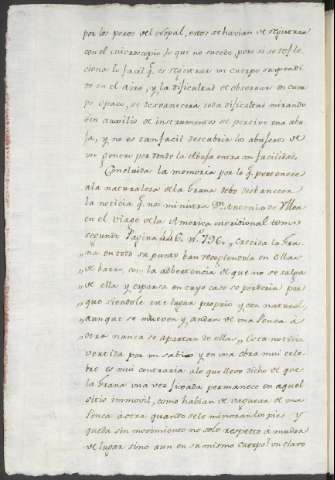 por los poros del nopal, estos se havian de registrar
con el microscopio, lo que no sucede, pero si se refle
ciona lo facil q.e es registrar un cuerpo suspendi
do en el aire, y la dificultad de observar en cuer
po opaco, se desvanecera toda dificultad mirando
sin auxilio de instrumentos se percive una abe
ja, y no es tan facil descubrir los abujeros de
un genero por donde la abuja entra con facilidad.
Concluida la memoria por lo q.e pertenece
a la naturaleza de la grana debo desvanecer
la noticia q.e nos ministra Dn. Antonio de Ulloa
en el viage de la America meridional tomo
segundo Pagina 446. n.o 796. „ Crecida la gra
„ na en todo su
„ con la advertencia de que no se salga
„ de ella y esparsa en cuyo caso se perderia por
„ que siendole este lugar proprio y tan natural,
„ aunque se mueven y andan de una penca a
„ otra nunca se apartan de ella „ Esta noticia
vertida por un sabio y en una obra mui cele
bre es mui contraria a lo que llevo dicho de que
la grana una vez fixada permanece en aquel
sitio immovil, como habian de vaguear de una
penca a otra quando solo minoran los pies y
queda sin movimiento no solo respecto a mudar
de lugar sino aun en su mismo cuerpo? un claro